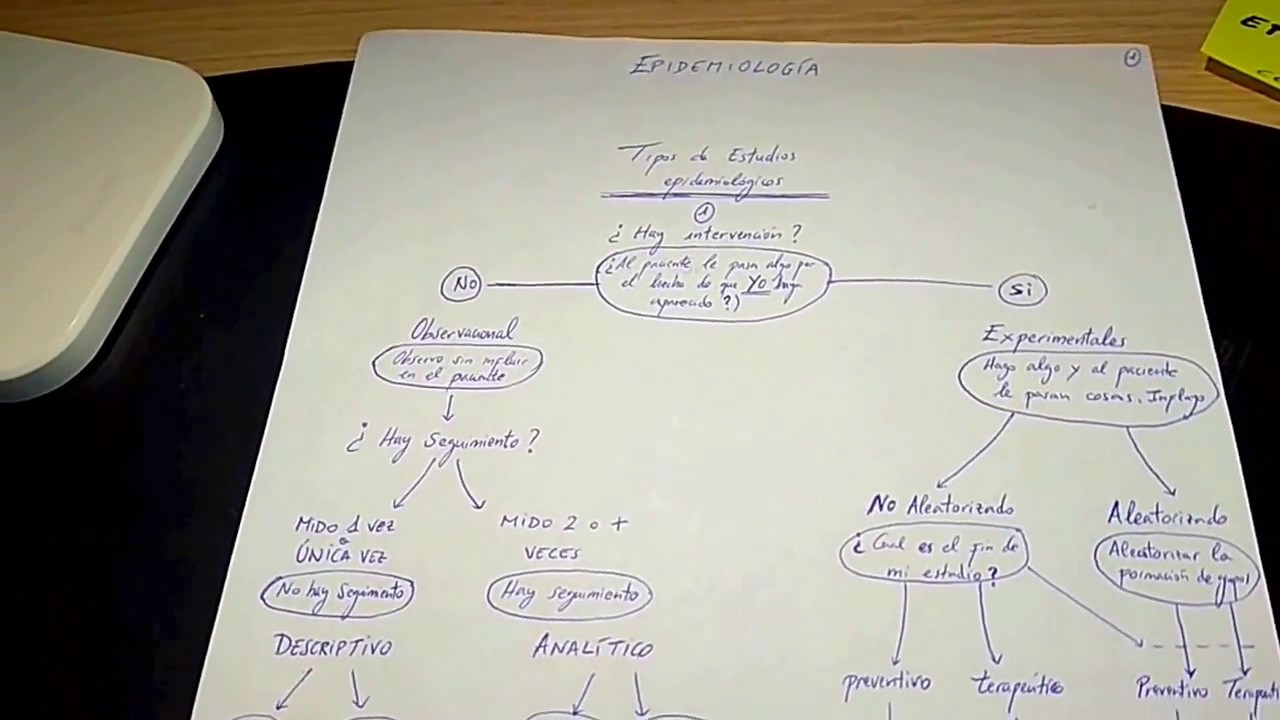 EPIDEMIOLOGÍA
1
Tipos de Estudios
epidemiológicos
1
¿Hay intervención?
¿Al paciente le pasa algo por
el hecho de que YO haya
aparecido?)
No
Si
Observacional
Observo sin influir
en el paciente
¿Hay Seguimiento?
MIDO 1 VEZ
o
ÚNICA VEZ
No hay Seguimiento
DESCRIPTIVO
MIDO 2 o +
VECES
Hay seguimiento
ANALÍTICO
Experimentales
Hago algo y al paciente
le pasan cosas. Influyo
No Aleatorizado
¿Cual es el fin de
mi estudio?
preventivo
terapéutico
Aleatorizado
Aleatorizar la
formación de grupos
Preventivo
Terapeuti